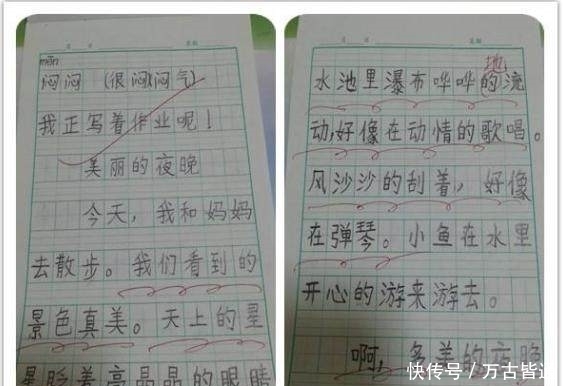 mēn
闷闷 (很闷)(闷气)
我正写着作业呢！
美丽的夜晚
今天，我和妈妈
去散步。我们看到的
景色真美。天上的星
星眨着亮晶晶的眼睛
地
水池里瀑布哗哗的流
动,好像在动情的歌唱。
风沙沙的刮着，好像
在弹琴。小鱼在水里
开心的游来游去。
啊，多美的夜晚
快传号／万古皆